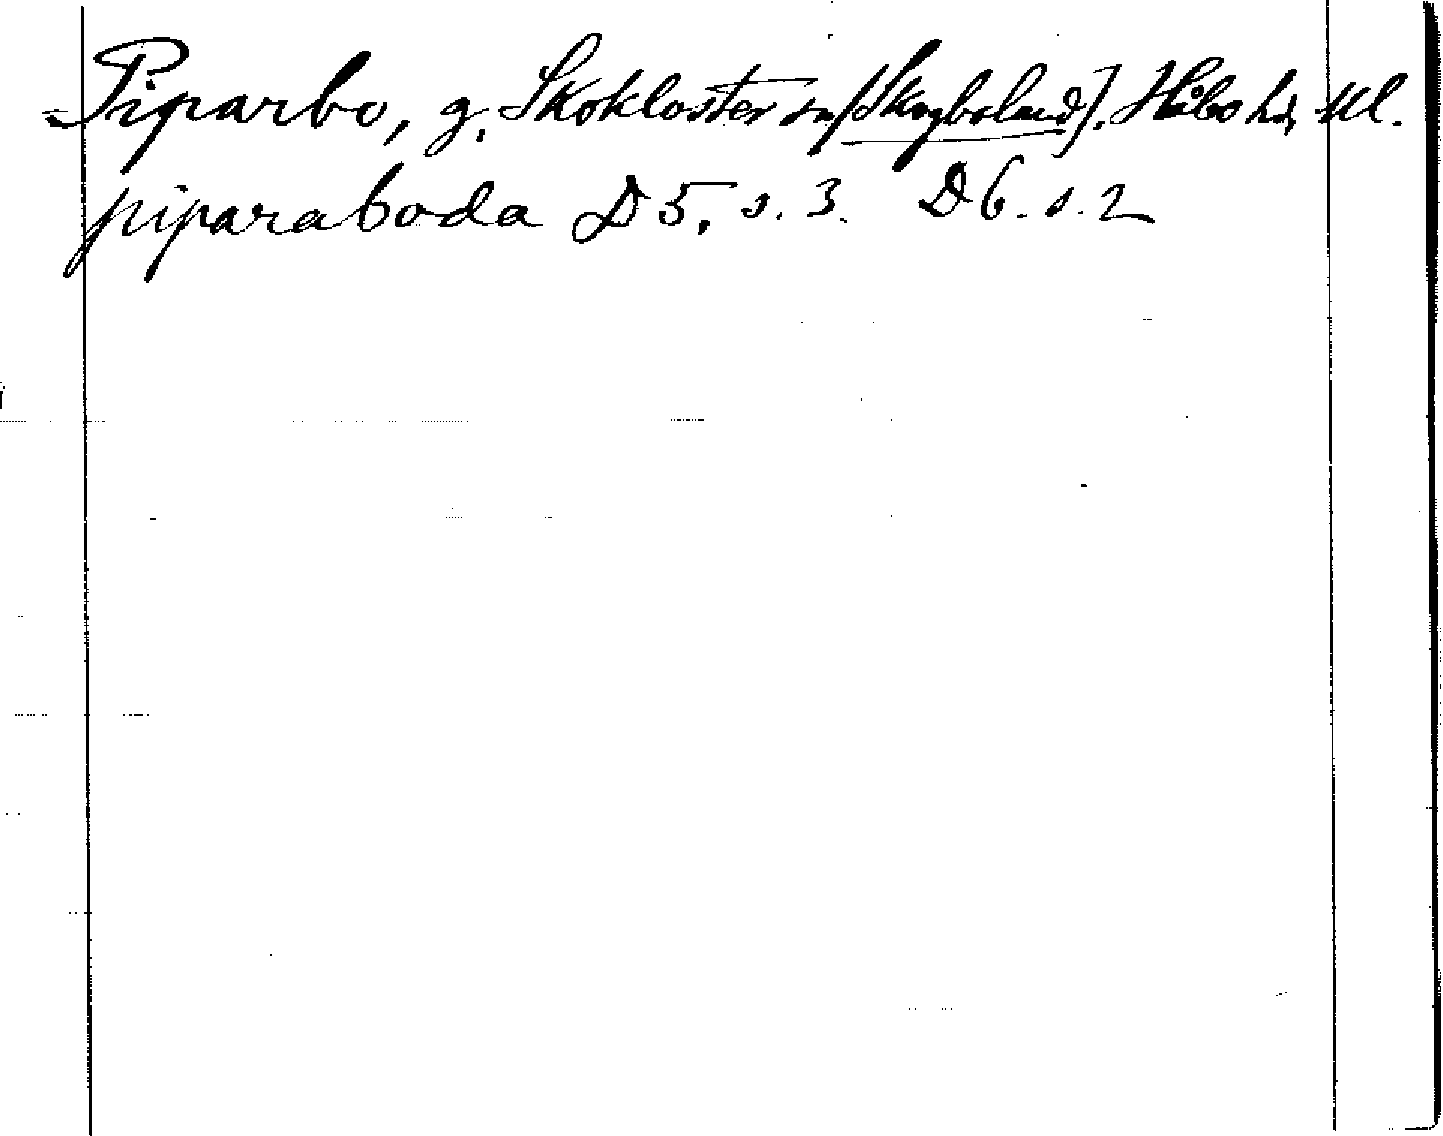 Piparbo, g. Skokloster sn [Skogboland]. Håbo hd, Ul.
piparaboda D 5, s. 3. D 6. s. 2